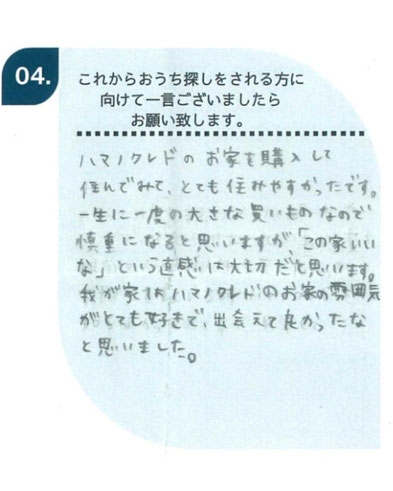 04.
これからおうち探しをされる方に
向けて一言ございましたら
お願い致します。
ハマノクレドの お家を購入して
住んでみて、とても住みやすかったです。
一生に一度の大きな買いものなので
慎重になると思いますが、「この家いい
な」という直感は大切だと思います。
我が家はハマノクレドのお家の雰囲気
がとても好きで、出会えて良かったな
と思いました。